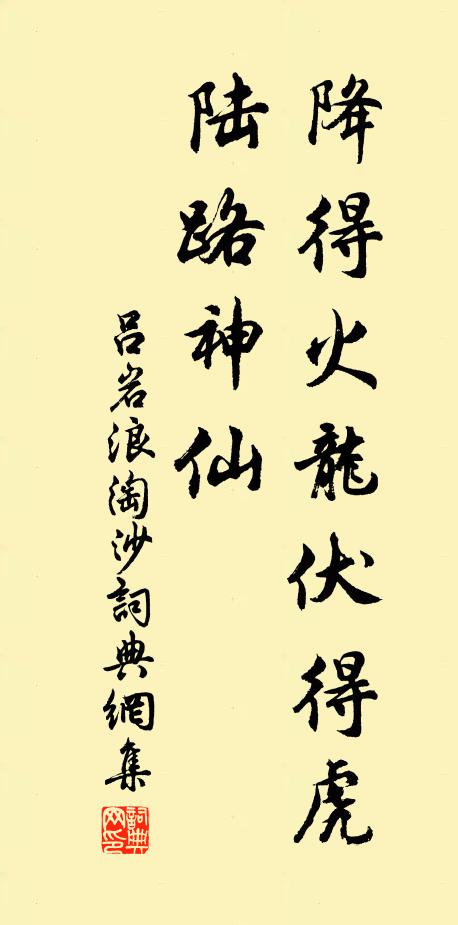 降得火龍伏得虎
陆路神仙
吕岩浪淘沙詞典網集
詞典网印